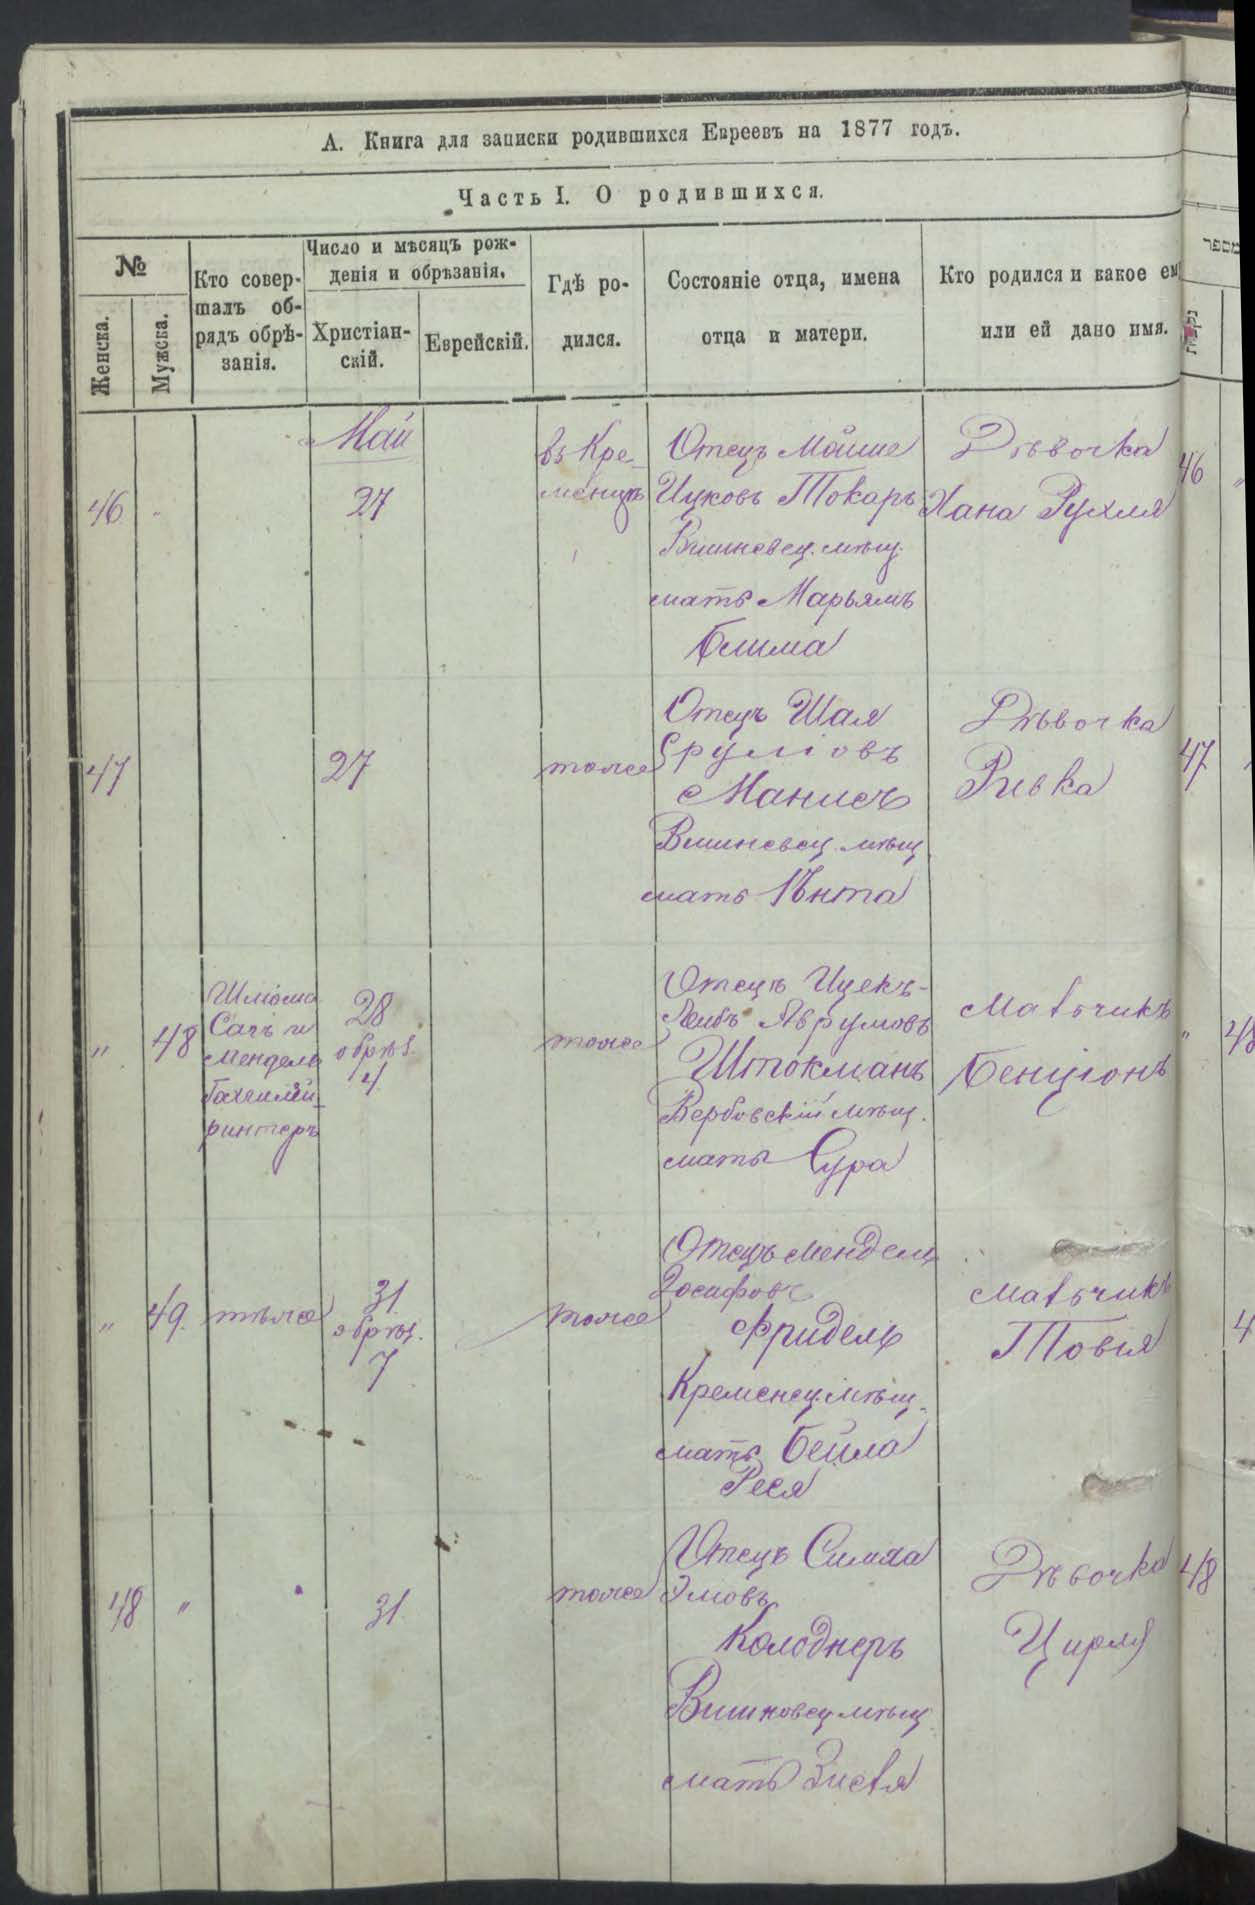 А. Книга для записки родившихся Евреевъ на 1877 годъ.
Часть I. О родившихся.
№
Женска.
Мужска.
Кто совер-
шалъ об-
рядъ обрѣ-
занія.
Число и мѣсяцъ рож-
денія и обрѣзанія.
Христіан-
скій.
Еврейскій.
Гдѣ ро-
дился.
Состояніе отца, имена
отца и матери.
Кто родился и какое ем
или ей дано имя.
מספר
Май
46
27
въ Кре-
менцѣ
Отецъ Мойше
Ицковъ Токаръ
Вишневец. мѣщ.
мать Марьямъ
Блима
Дѣвочка
Хана Рухля
46
47
27
тоже
Отецъ Шая
Сруліовъ
Манисъ
Вишневец. мѣщ
мать Ента
Дѣвочка
Ривка
47
„ 48
Шліома
Сачъ и
Мендель
28
обрѣз.
4
тоже
Отецъ Ицекъ-
Лейбъ Аврумовъ
Штокманъ
Вербовскій мѣщ.
мать Сура
Мальчикъ
Бенціонъ
„ 48
„ 49.
тоже
31
обрѣз.
7
тоже
Отецъ Мендель
Іосифовъ
Фридель
Кременец. мѣщ.
мать Бейла
Реся
Мальчикъ
Товія
4
48 „
31
тоже
Отецъ Симха
Колоднеръ
Вишновец мѣщ.
мать Зисля
Дѣвочка
Цирля
48